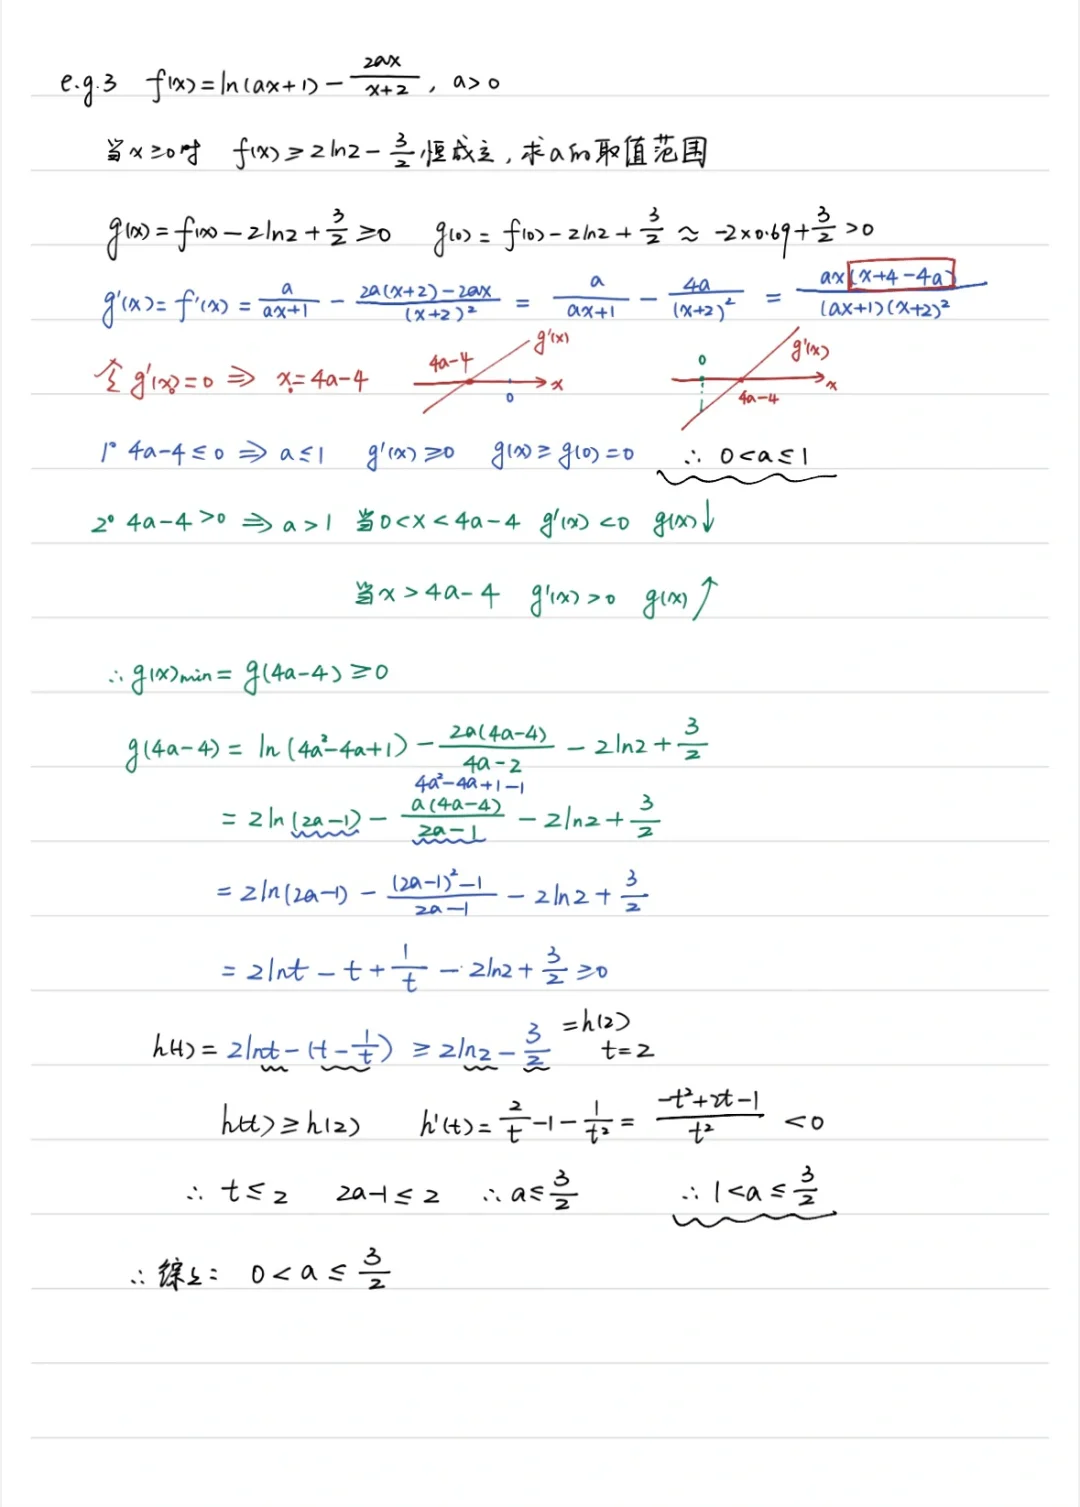 e.g.3 f(x)=ln(ax+1)-\frac{2ax}{x+2}, a>0
当x≥0时 f(x)≥2ln2-\frac{3}{2}恒成立,求a的取值范围
g(x)=f(x)-2ln2+\frac{3}{2}≥0 g(0)=f(0)-2ln2+\frac{3}{2}≈-2×0.69+\frac{3}{2}>0
g'(x)=f'(x)=\frac{a}{ax+1}-\frac{2a(x+2)-2ax}{(x+2)^2}=\frac{a}{ax+1}-\frac{4a}{(x+2)^2}=\frac{ax(x+4-4a)}{(ax+1)(x+2)^2}
令g'(x_0)=0⇒x_0=4a-4 4a-4 g'(x) x 0 0 g'(x) x 4a-4
1° 4a-4≤0⇒a≤1 g'(x)≥0 g(x)≥g(0)=0 ∴0<a≤1
2° 4a-4>0⇒a>1 当0<x<4a-4 g'(x)<0 g(x)↓
当x>4a-4 g'(x)>0 g(x)↑
∴g(x)min=g(4a-4)≥0
g(4a-4)=ln(4a^2-4a+1)-\frac{2a(4a-4)}{4a-2}-2ln2+\frac{3}{2}
4a^2-4a+1-1
=2ln(2a-1)-\frac{a(4a-4)}{2a-1}-2ln2+\frac{3}{2}
=2ln(2a-1)-\frac{(2a-1)^2-1}{2a-1}-2ln2+\frac{3}{2}
=2lnt-t+\frac{1}{t}-2ln2+\frac{3}{2}≥0
h(t)=2lnt-(t-\frac{1}{t})≥2ln2-\frac{3}{2}=h(2)
t=2
h(t)≥h(2) h'(t)=\frac{2}{t}-1-\frac{1}{t^2}=\frac{-t^2+2t-1}{t^2}<0
∴t≤2 2a-1≤2 ∴a≤\frac{3}{2} ∴1<a≤\frac{3}{2}
∴综上:0<a≤\frac{3}{2}